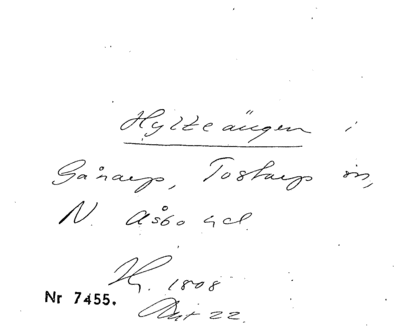 Hylteängen i
Gånarp, Tostarp sn,
N. Åsbo hd.
Hj. 1808
Nr 7455.
Akt 22